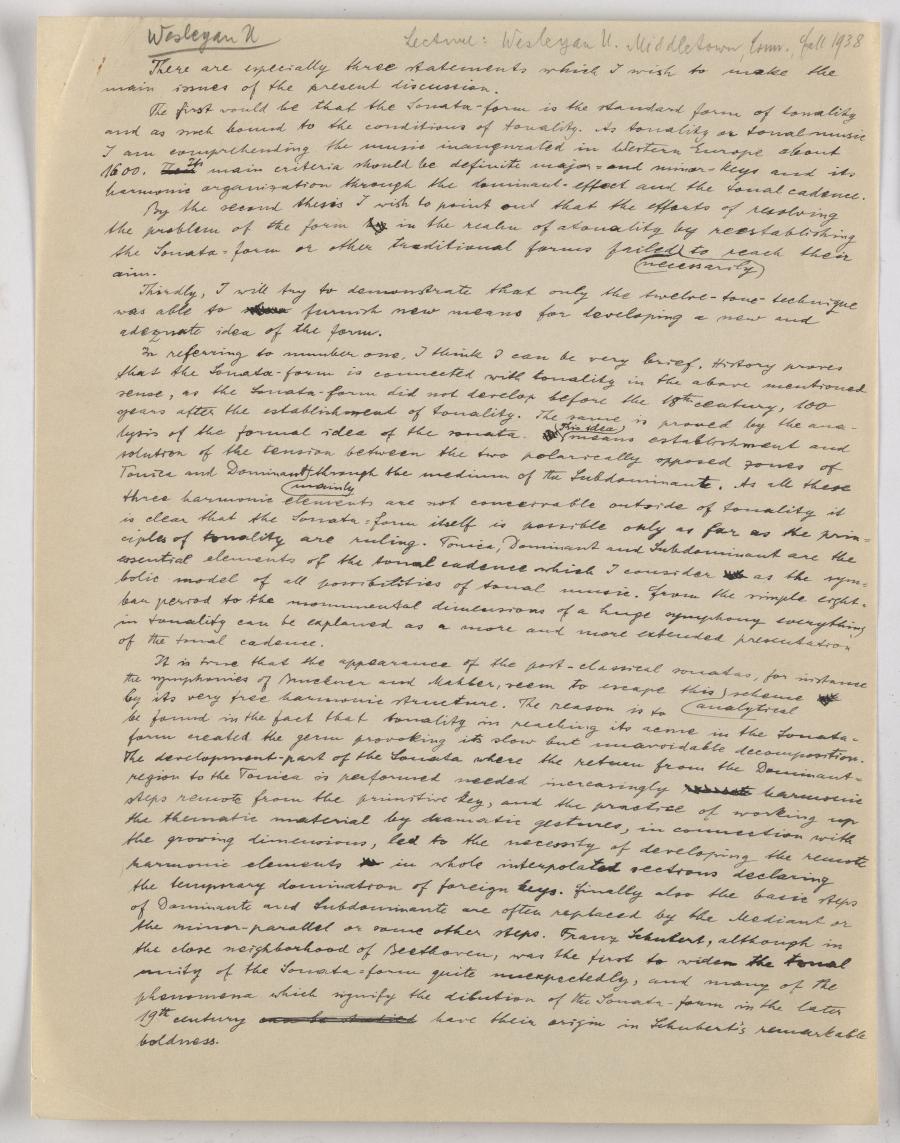 Wesleyan U
Lecture: Wesleyan U. Middletown, Conn., fall 1938
There are especially three statements which I wish to make the
main issues of the present discussion.
The first would be that the Sonata-form is the standard form of tonality
and as such bound to the conditions of tonality. As tonality or tonal music
I am comprehending the music inaugurated in Western Europe about
1600. Its main criteria should be definite major- and minor-keys and its
harmonic organization through the dominant-effect and the tonal cadence.
By the second thesis I wish to point out that the efforts of resolving
the problem of the form in the realm of atonality by reestablishing
the Sonata-form or other traditional forms failed to reach their
(necessarily)
aim.
Thirdly, I will try to demonstrate that only the twelve-tone-technique
was able to furnish new means for developing a new and
adequate idea of the form.
In referring to number one, I think I can be very brief. History proves
that the Sonata-form is connected with tonality in the above mentioned
sense, as the Sonata-form did not develop before the 18th century, 100
years after the establishment of tonality. The same is proved by the ana-
lysis of the formal idea of the sonata. (This idea) means establishment and
solution of the tension between the two polarically opposed zones of
Tonica and Dominant, through the medium of the Subdominante. As all these
(mainly)
three harmonic elements are not conceivable outside of tonality it
is clear that the Sonata-form itself is possible only as far as the prin-
ciples of tonality are ruling. Tonica, Dominant and Subdominant are the
essential elements of the tonal cadence which I consider as the sym-
bolic model of all possibilities of tonal music. From the simple eight-
bar period to the monumental dimensions of a huge symphony everything
in tonality can be explained as a more and more extended presentation
of the tonal cadence.
It is true that the appearance of the post-classical sonatas, for instance
the symphonies of Bruckner and Mahler, seem to escape this scheme
by its very free harmonic structure. The reason is to (analytical
be found in the fact that tonality in reaching its acme in the Sonata-
form created the germ provoking its slow but unavoidable decomposition.
The development-part of the Sonata where the return from the Dominant-
region to the Tonica is performed needed increasingly harmonic
steps remote from the primitive key, and the practice of working up
the thematic material by dramatic gestures, in connection with
the growing dimensions, led to the necessity of developing the remote
harmonic elements in whole interpolated sections declaring
the temporary domination of foreign keys. Finally also the basic steps
of Dominante and Subdominante are often replaced by the Mediant or
the minor-parallel or some other steps. Franz Schubert, although in
the close neighborhood of Beethoven, was the first to widen the tonal
unity of the Sonata-form quite unexpectedly, and many of the
phenomena which signify the dilution of the Sonata-form in the later
19th century can be studied have their origin in Schubert's remarkable
boldness.